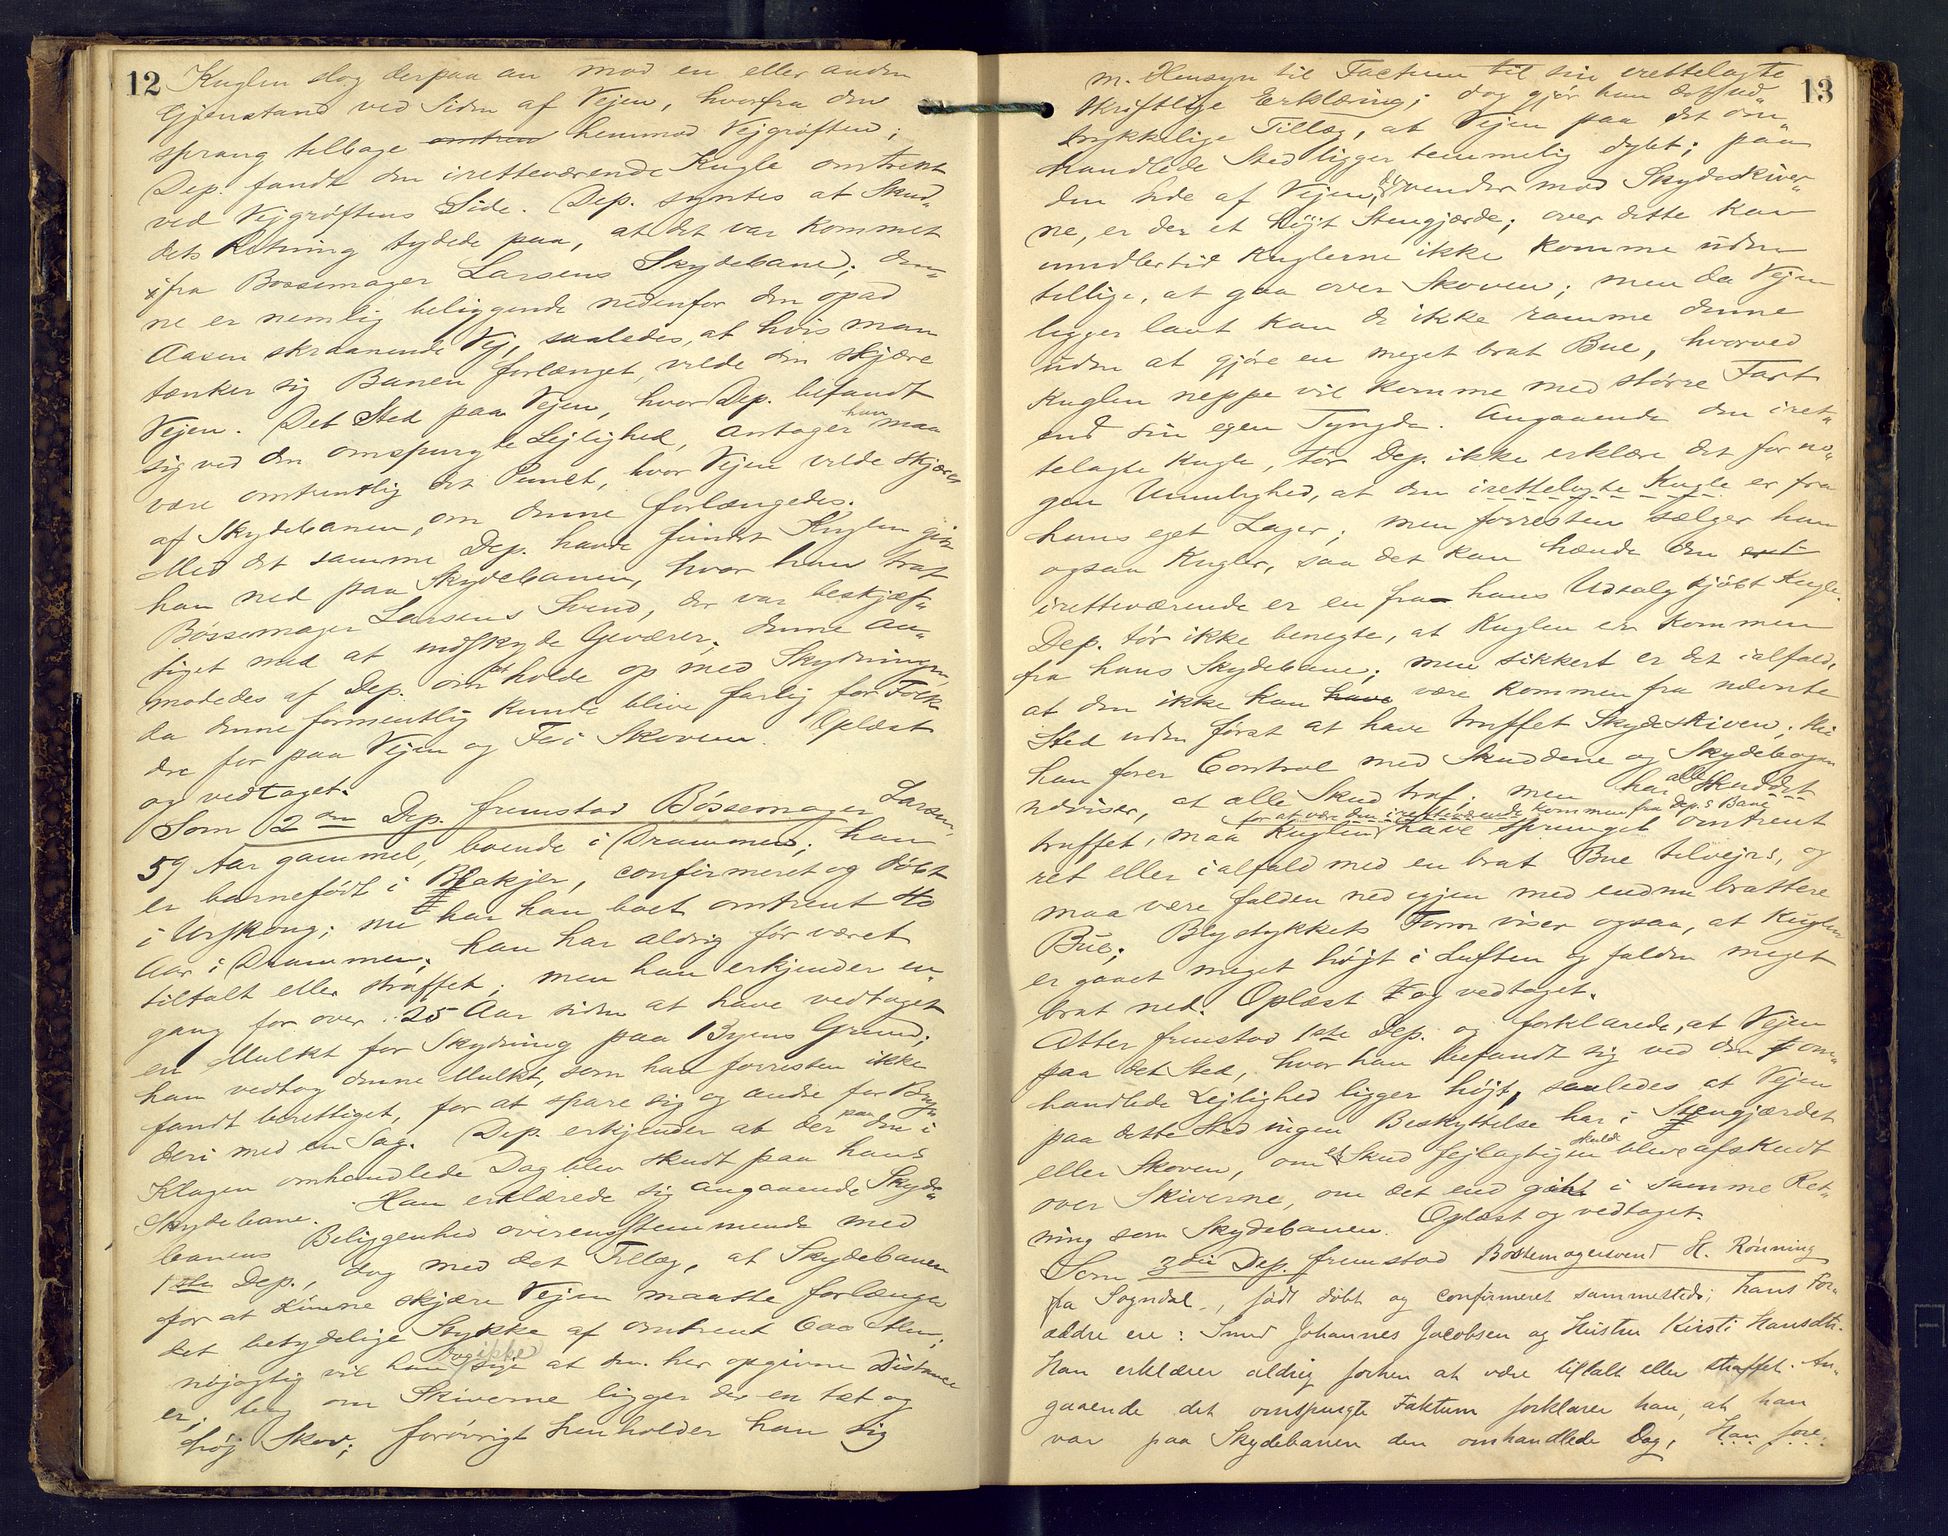 12
Kuglen slog derpaa an mod en eller anden
Gjenstand ved Siden af Vejen, hvorfra den
sprang tilbage omtren henmod Vejgrøften;
Dep. fandt den iretteværende Kugle omtrent
ved Vejgrøftens Side. Dep. syntes at Skud-
dets Retning tydede paa, at det var kommet
ifra Bøssemager Larsens Skydebane; den-
ne er nemlig beliggende nedenfor den opad
Aasen skraanende Vej, saaledes, at hvis man
tænker sig Banen forlænget, vilde den skjære
Vejen. Det Sted paa Vejen, hvor Dep. befandt
sig ved den omspurgte Lejlighed, antager han maa
være omtrentlig det Punct, hvor Vejen vilde skjæres
af Skydebanen, om denne forlængedes.
Med det samme Dep. havde fundet Kuglen gik
han ned paa Skydebanen, hvor han traf
Bøssemager Larsens Svend, der var beskjæf-
tiget med at indskyde Geværer; denne an-
modedes af Dep. om at holde op med Skydningen,
da denne formentlig kunde blive farlig for Folk
dre for paa Vejen og Fe i Skoven. Oplæst
og vedtaget.
Som 2den Dep. fremstod Bøssemager Larsen,
59 Aar gammel, boende i Drammen; han
er barnefødt i Blakjer, confirmeret og døbt
i Urskoug; nu har han boet omtrent 40
Aar i Drammen; han har aldrig før været
tiltalt eller straffet; men han erkjender en-
gang for over 25 Aar siden at have vedtaget
en Mulkt for Skydning paa Byens Grund;
han vedtog denne Mulkt, som han forresten ikke
fandt berettiget, for at spare sig og andre for Bry-
deri med en Sag. Dep. erkjender at der paa den i
Klagen omhandlede Dag blev skudt paa hans
Skydebane. Han erklærede sig angaaende Skyde-
banens Beliggenhed overensstemmende med
1ste Dep., dog med det Tillæg, at Skydebanen
for at kunne skjære Vejen maatte forlænges
det betydelige Stykke af omtrent 600 Alen;
nøjagtig vil han dog ikke sige at den her opgivne Distance
er; bag om Skiverne ligger der en tæt og
høj Skov; forøvrigt henholder han sig
13
m. Hensyn til Factum til sin irettelagte
skriftlige Erklæring; dog gjør han det ud-
trykkelige Tillæg, at Vejen paa det om-
handlede Sted ligger temmelig dybt; paa
den Side af Vejen, der vender mod Skydeskiver-
ne, er der et højt Stengjærde; over dette kan
imidlertid Kuglerne ikke komme uden
tillige, at gaa over Skoven; men da Vejen
ligger lavt kan de ikke ramme denne
uden at gjøre en meget brat Bue, hvorved
Kuglen neppe vil komme med større Fart
end sin egen Tyngde. Angaaende den iret-
telagte Kugle, tør Dep. ikke erklære det for no-
gen Umulighed, at den irettelagte Kugle er fra
hans eget Lager; men forresten sælger han
ogsaa Kugler, saa det kan hænde den
iretteværende er en fra hans Udsalg kjøbt Kugle.
Dep. tør ikke benegte, at Kuglen er kommen
fra hans Skydebane; men sikkert er det ialfald,
at den ikke kan have være kommen fra nævnte
Sted uden først at have truffet Skydeskiven; thi
han fører Control med Skuddene og Skydebogen
udviser, at alle Skud traf; men har alle Skuddet
truffet, maa Kuglen for at være den iretteværende kommen fra Dep.s Bane have sprunget omtrent
ret eller ialfald med en brat Bue tilvejrs, og
maa være falden ned igjen med endnu brattere
Bue; Blystykkets Form viser ogsaa, at Kuglen
er gaaet meget højt i Luften og falden meget
brat ned. Oplæst og vedtaget.
Atter fremstod 1ste Dep. og forklarede, at Vejen
paa det Sted, hvor han befandt sig ved den om-
handlede Lejlighed ligger højt, saaledes at Vejen
paa dette Sted ingen Beskyttelse har i Stengjærdet
eller Skoven, om et Skud fejlagtigen skulde blive afskudt
over Skiverne, om det end gik i samme Ret-
ning som Skydebanen. Oplæst og vedtaget.
Som 3die Dep. fremstod Bøssemagersvend H. Rønning
fra Sogndal, født døbt og confirmeret sammesteds; hans For-
ældre ere: Smed Johannes Jacobsen og Hustru Kirsti Hansdtr.
Han erklærer aldrig forhen at være tiltalt eller straffet. An-
gaaende det omspurgte Faktum forklarer han, at han
var paa Skydebanen den omhandlede Dag; Han fore-